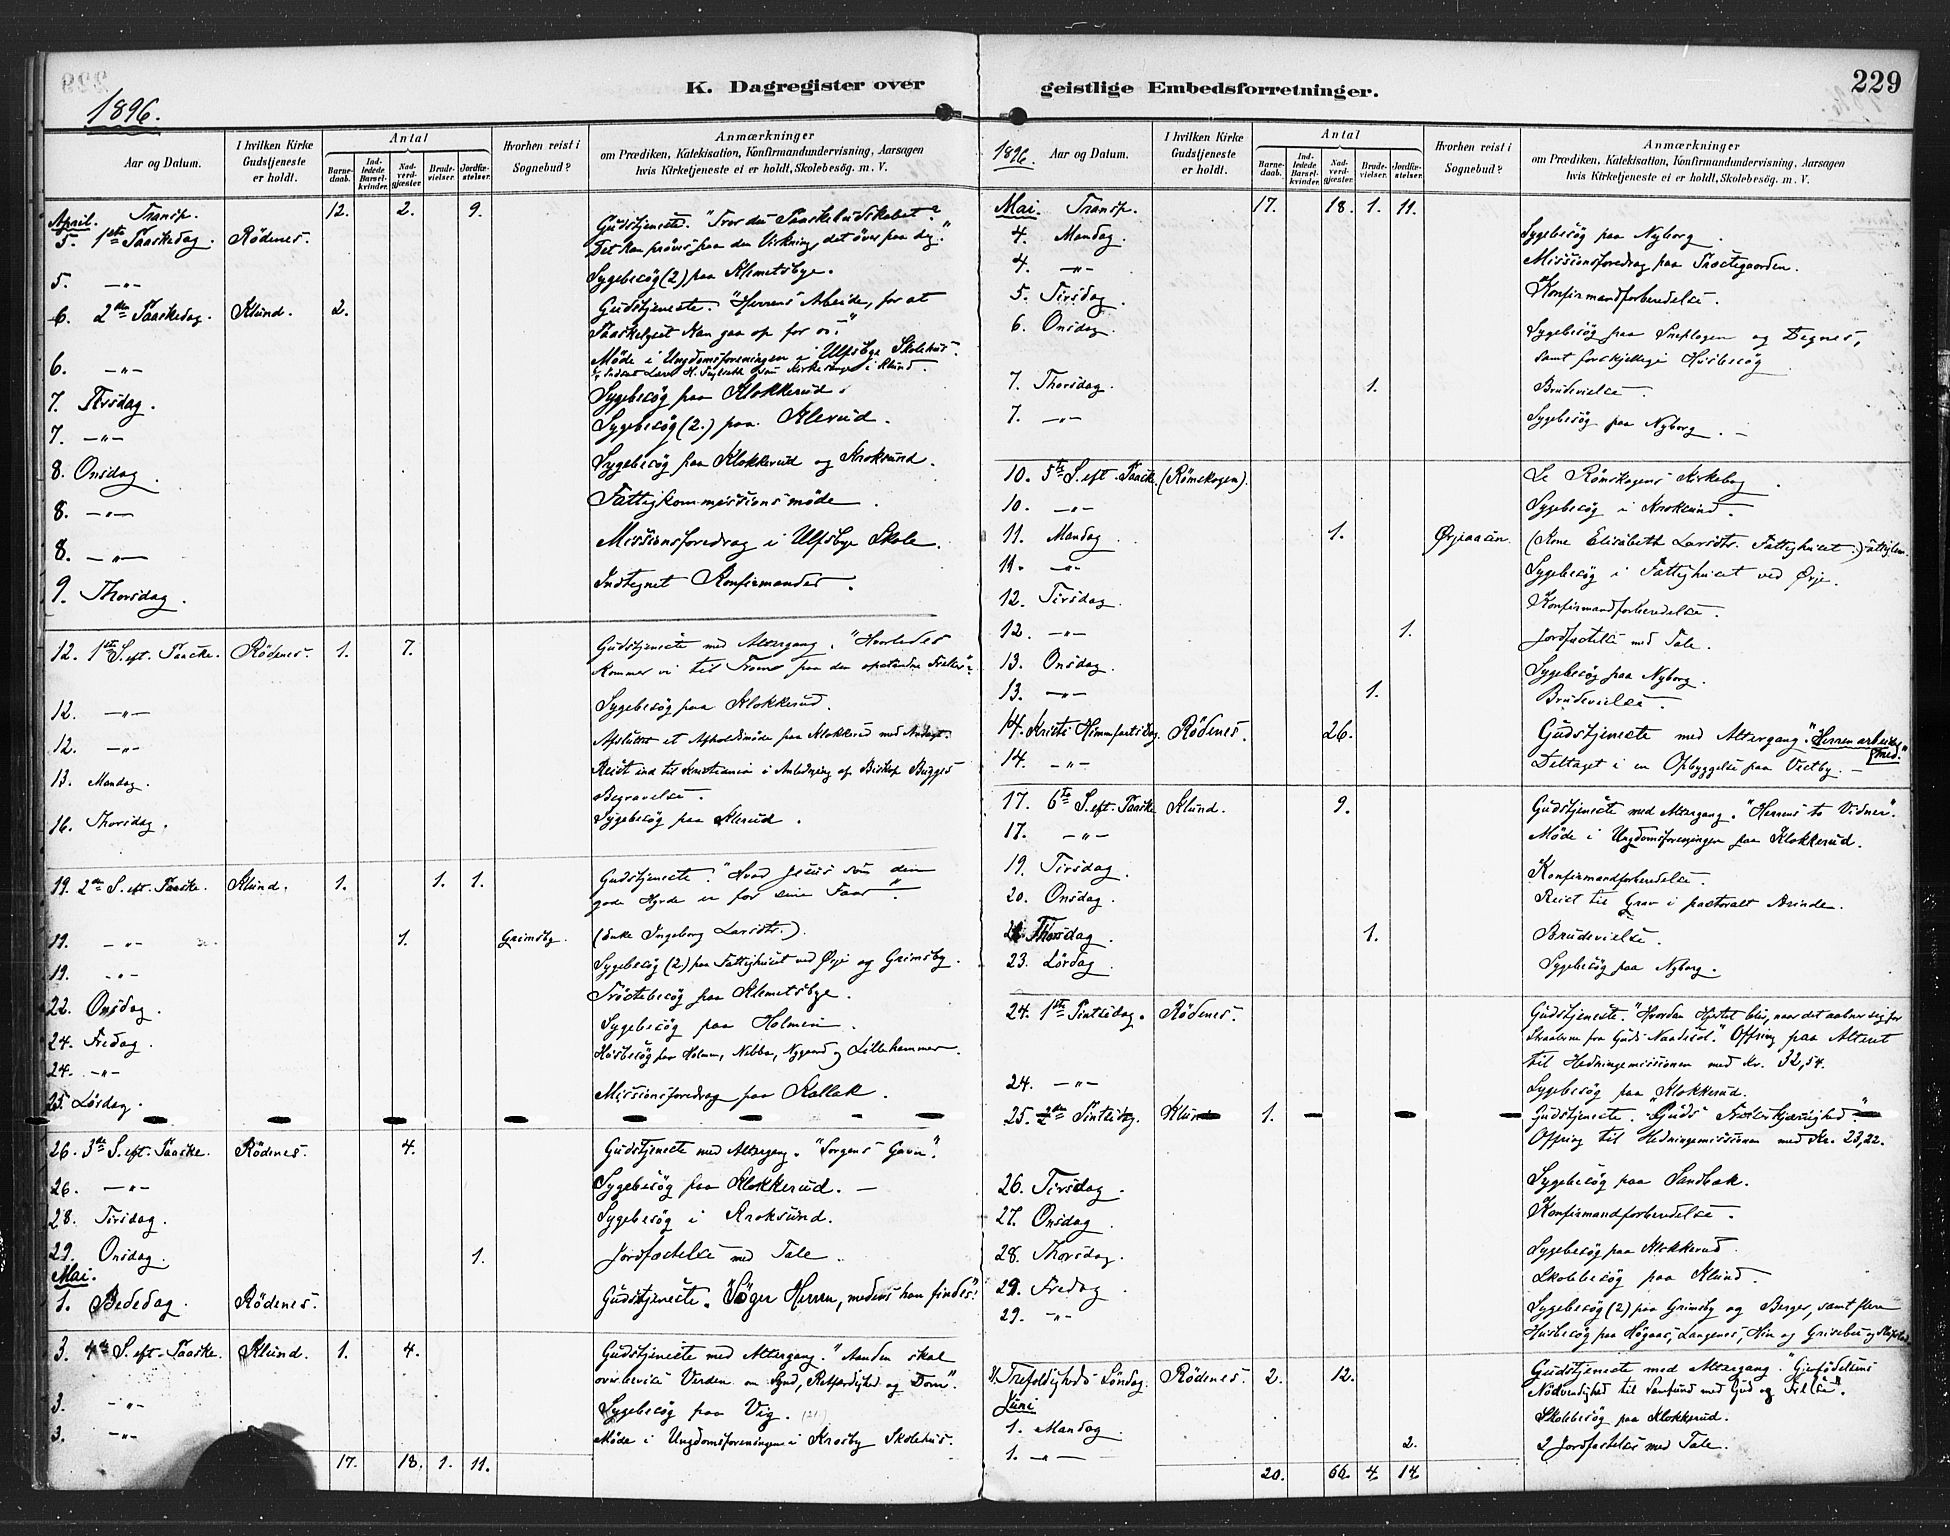 K. Dagregister over
1896.
Aar og Datum.
I hvilken Kirke Gudstjeneste er holdt.
Antal
Barnedaab.
Indledede Barselkvinder.
Nadverdgjæster
Brudevielser.
Jordfæstelser.
Hvorhen reist i Sognebud?
Anmærkninger
om Prædiken, Katekisation, Konfirmandundervisning, Aarsagen
hvis Kirketjeneste ei er holdt, Skolebesög. m. V.
April. Transp. 12. 2. 9.
5. 1ste Paaskedag. Rödenes. Gudstjeneste. "Tror du Paaskebudskabet?
Det kan pröves paa den Virkning, det över paa dig."
5. -"- Sygebesög (2) paa Klemetsbye.
6. 2den Paaskedag. Klund. 2. Gudstjeneste. "Herrens Arbeide, for at
Paaskelyset kan gaa op for os."
6. -"- Möde i Ungdomsforeningen i Ulfsbye Skolehus.
7. Tirsdag. Sygebesög paa Klokkerud.
7. -"- Sygebesög (2.) paa Klerud.
8. Onsdag. Sygebesög paa Klokkerud og Kroksund.
8. -"- Fattigkommissionsmöde.
8. -"- Missionsforedrag i Ulfsbye Skole.
9. Thorsdag. Indtegnet Konfirmander.
12. 1ste S. eft. Paaske. Rödenes. 1. 7. Gudstjeneste med Altergang. "Hvorledes
kommer vi til Troen paa den opstandne Frelser".
12. -"- Sygebesög paa Klokkerud.
12. -"- Afsluttet et Afholdsmöde paa Klokkerud med Andagt.
13. Mandag. Reist ind til Kristiania i Anledning af Biskop Bugges
Begravelse.
16. Thorsdag. Sygebesög paa Klerud.
19. 2den S. eft. Paaske. Klund. 1. 1. 1. Gudstjeneste. "Hvad Jesus som den
gode Hyrde er for sine Faar."
19. -"- 1. Grimsby. (Enke Ingeborg Larsdtr.).
19. -"- Sygebesög (2.) paa Fattighuset ved Ørje og Grimsby.
22. Onsdag. Tröstebesög paa Klemetsbye.
24. Fredag. Sygebesög paa Holmen.
24. -"- Husbesög paa Holmen, Nebba, Nygaard og Lillehammer.
25. Lörsdag. Missionsforedrag paa Kallak.
26. 3die S. eft. Paaske. Rödenes. 4. Gudstjeneste med Altergang. "Sorgens Gavn".
26. -"- Sygebesög paa Klokkerud. —
28. Tirsdag. Sygebesög i Kroksund.
29. Onsdag. 1. Jordfæstelse med Tale.
Mai.
1. Bededag. Rödenes. Gudstjeneste. "Söger Herren, medens han findes."
3. 4de S. eft. Paaske. Klund. 1. 4. Gudstjeneste med Altergang. "Aanden skal
overbevise Verden om Synd, Retfærdighed og Dom".
3. -"- Sygebesög paa Vig.
3. -"- Möde i Ungdomsforeningen i Krosby Skolehus.
17. 18. 1. 11.
geistlige Embedsforretninger.
229
1896.
Aar og Datum.
I hvilken Kirke Gudstjeneste er holdt.
Antal
Barnedaab.
Indledede Barselkvinder.
Nadverdgjæster
Brudevielser.
Jordfæstelser.
Hvorhen reist i Sognebud?
Anmærkninger
om Prædiken, Katekisation, Konfirmandundervisning, Aarsagen
hvis Kirketjeneste ei er holdt, Skolebesög. m. V.
Mai. Transp. 17. 18. 1. 11.
4. Mandag. Sygebesög paa Nyborg.
4. -"- Missionsforedrag paa Præstegaarden.
5. Tirsdag. Konfirmandforberedelse.
6. Onsdag. Sygebesög paa og Degnes,
samt forskjellige Husbesög
7. Thorsdag. 1. Brudevielse.
7. -"- Sygebesög paa Nyborg. —
10. 5te S. eft. Paaske. (Römskogen). Se Römskogens Kirkebog.
10. -"- Sygebesög i Kroksund.
11. Mandag. 1. Ørjeaasen. (Kone Elisabeth Larsdtr. Fattighuset.)
11. -"- Sygebesög i Fattighuset ved Ørje.
12. Tirsdag. Konfirmandforberedelse.
12. -"- 1. Jordfæstelse med Tale.
13. Onsdag. Sygebesög paa Nyborg.
13. -"- 1. Brudevielse.
14. Kristi Himmfartsdag. Rödenes. 26. Gudstjeneste med Altergang. "Herren arbeider med."
14. -"- Deltaget i en Opbyggelse paa Vestby. —
17. 6te S. eft. Paaske Klund. 9. Gudstjeneste med Altergang. "Herrens to Vidner".
17. -"- Möde i Ungdomsforeningen paa Klokkerud.
19. Tirsdag. Konfirmandforberedelse.
20. Onsdag. Reist til Grav i pastoralt Ærinde.
21. Thorsdag. 1. Brudevielse.
23. Lördag. Sygebesög paa Nyborg.
24. 1ste Pintsedag. Rödenes. Gudstjeneste. "Hvordan Hjertet blir, naar det aabner sig for
Straalerne fra Guds Naadesol." Offring paa Alteret
til Hedningemissionen med Kr. 32,54.
24. -"- Sygebesög paa Klokkerud.
25. 2den Pintsedag. Klund 1. Gudstjeneste. Guds Kjærlighed"
Offring til Hedningemissionen med Kr. 23,22.
26. Tirsdag. Sygebesög paa Sandbæk.
27. Onsdag. Konfirmandforberedelse.
28. Thorsdag. Sygebesög paa Klokkerud.
29. Fredag. Skolebesög paa Klund.
29. -"- Sygebesög (2) paa Grimsby og Berger, samt flere
Husbesög paa Högaas, Langenes, og
31. Trefoldigheds Söndag. Rödenes. 2. 12. Gudstjeneste med Altergang. "Gjenfödelsens
Nödvendighed til Samfund med Gud og Frelse".
Juni
1. Mandag. Skolebesög paa Klokkerud.
1. -"- 2. 2 Jordfæstelser med Tale.
20. 66. 4. 14.